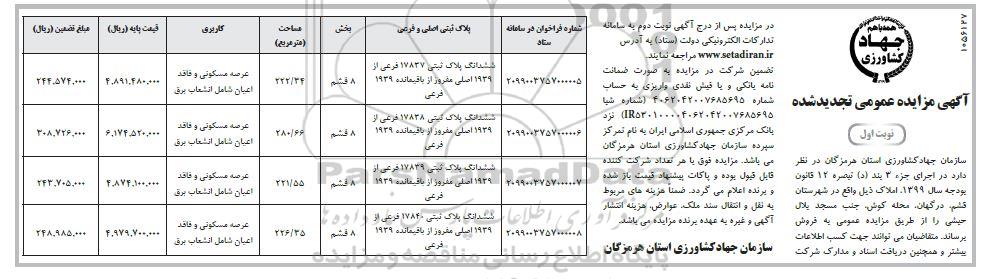 ۱۰۵۶۱۲۷
همه با هم
جهاد
کشاورزی
آگهی مزایده عمومی تجدیدشده
نوبت اول
سازمان جهادکشاورزی استان هرمزگان در نظر
دارد در اجرای جزء ۳ بند (د) تبصره ۱۲ قانون
بودجه سال ۱۳۹۹، املاک ذیل واقع در شهرستان
قشم، درگهان، محله کوش، جنب مسجد بلال
حبشی را از طریق مزایده عمومی به فروش
برساند. متقاضیان می توانند جهت کسب اطلاعات
بیشتر و همچنین دریافت اسناد و مدارک شرکت
در مزایده پس از درج آگهی نوبت دوم به سامانه
تدارکات الکترونیکی دولت (ستاد) به آدرس
www.setadiran.ir مراجعه نمایند.
تضمین شرکت در مزایده به صورت ضمانت
نامه بانکی و یا فیش نقدی واریزی به حساب
شماره ۴۰۶۲۰۴۲۰۰۷۶۸۵۶۹۵ (شماره شبا
IR۵۳۰۱۰۰۰۰۴۰۶۲۰۴۲۰۰۷۶۸۵۶۹۵) نزد
بانک مرکزی جمهوری اسلامی ایران به نام تمرکز
سپرده سازمان جهادکشاورزی استان هرمزگان
می باشد. مزایده فوق با هر تعداد شرکت کننده
قابل قبول بوده و پاکات پیشنهاد قیمت باز شده
و برنده اعلام می گردد. ضمنا هزینه های مربوط
به نقل و انتقال سند ملک، عوارض، هزینه انتشار
آگهی و غیره به عهده برنده مزایده می باشد.
سازمان جهادکشاورزی استان هرمزگان
شماره فراخوان در سامانه ستاد | پلاک ثبتی اصلی و فرعی | بخش | مساحت (مترمربع) | کاربری | قیمت پایه (ریال) | مبلغ تضمین (ریال)
۲۰۹۹۰۰۳۷۵۷۰۰۰۰۰۵ | ششدانگ پلاک ثبتی ۱۷۸۳۷ فرعی از ۱۹۳۹ اصلی مفروز از باقیمانده ۱۹۳۹ فرعی | ۸ قشم | ۲۲۲/۳۴ | عرصه مسکونی و فاقد اعیان شامل انشعاب برق | ۴,۸۹۱,۴۸۰,۰۰۰ | ۲۴۴,۵۷۴,۰۰۰
۲۰۹۹۰۰۳۷۵۷۰۰۰۰۰۶ | ششدانگ پلاک ثبتی ۱۷۸۳۸ فرعی از ۱۹۳۹ اصلی مفروز از باقیمانده ۱۹۳۹ فرعی | ۸ قشم | ۲۸۰/۶۶ | عرصه مسکونی و فاقد اعیان شامل انشعاب برق | ۶,۱۷۴,۵۲۰,۰۰۰ | ۳۰۸,۷۲۶,۰۰۰
۲۰۹۹۰۰۳۷۵۷۰۰۰۰۰۷ | ششدانگ پلاک ثبتی ۱۷۸۳۹ فرعی از ۱۹۳۹ اصلی مفروز از باقیمانده ۱۹۳۹ فرعی | ۸ قشم | ۲۲۱/۵۵ | عرصه مسکونی و فاقد اعیان شامل انشعاب برق | ۴,۸۷۴,۱۰۰,۰۰۰ | ۲۴۳,۷۰۵,۰۰۰
۲۰۹۹۰۰۳۷۵۷۰۰۰۰۰۸ | ششدانگ پلاک ثبتی ۱۷۸۴۰ فرعی از ۱۹۳۹ اصلی مفروز از باقیمانده ۱۹۳۹ فرعی | ۸ قشم | ۲۲۶/۳۵ | عرصه مسکونی و فاقد اعیان شامل انشعاب برق | ۴,۹۷۹,۷۰۰,۰۰۰ | ۲۴۸,۹۸۵,۰۰۰
پایگاه اطلاع رسانی مناقصه و مزایده